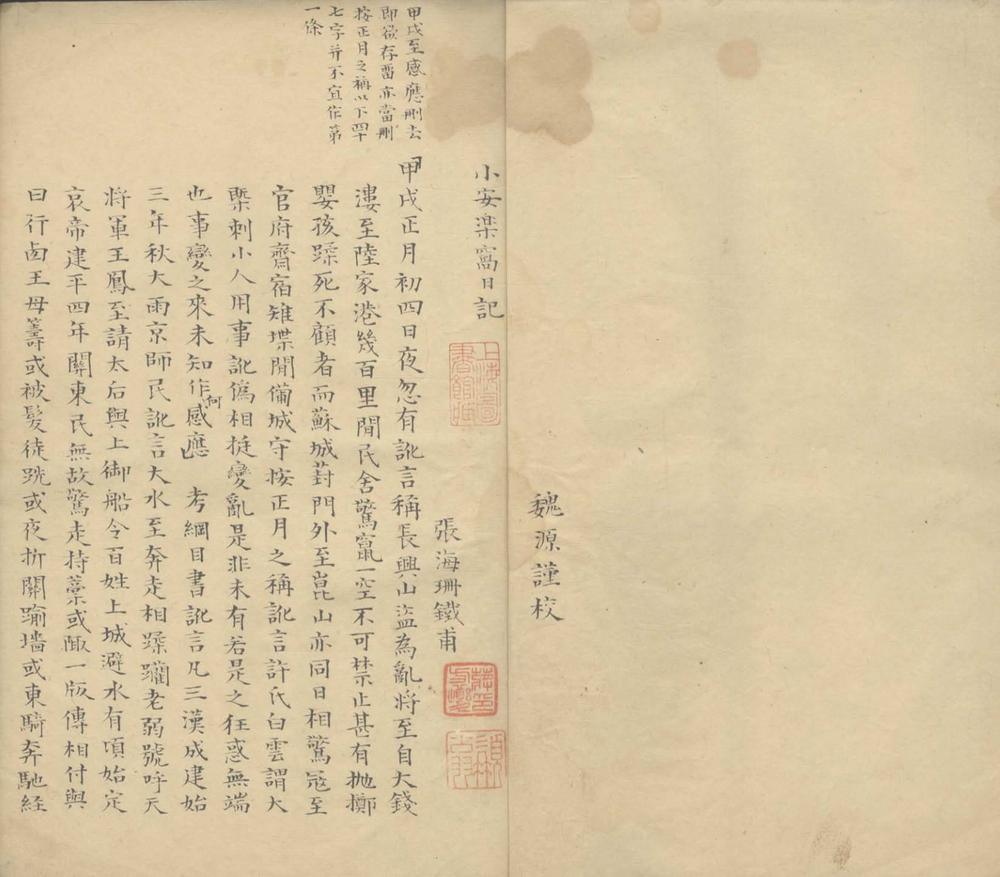 魏源謹校
小安楽窩日記
張海珊鐵甫
甲戌至感應刪去
即欲存畱亦當刪
按正月之稱以下四十
七字并不宜作第
一條
甲戌正月初四日夜忽有訛言稱長興山盜為亂將至自大錢
漊至陸家港幾百里閒民舍驚竄一空不可禁止甚有抛擲
嬰孩蹂死不顧者而蘇城葑門外至崑山亦同日相驚寇至
官府齋宿雉堞閒備城守按正月之稱訛言許氏白雲謂大
槩刺小人用事訛偽相挻變亂是非未有若是之狂惑無端
也事變之來未知作何感應 考綱目書訛言凡三漢成建始
三年秋大雨京師民訛言大水至奔走相蹂躪老弱號呼天
將軍王鳳至請太后與上御船令百姓上城避水有頃始定
哀帝建平四年關東民無故驚走持藁或掫一版傳相付與
曰行卤王母籌或被髮徒跣或夜折關踰墻或東騎奔馳経
上海圖書館藏